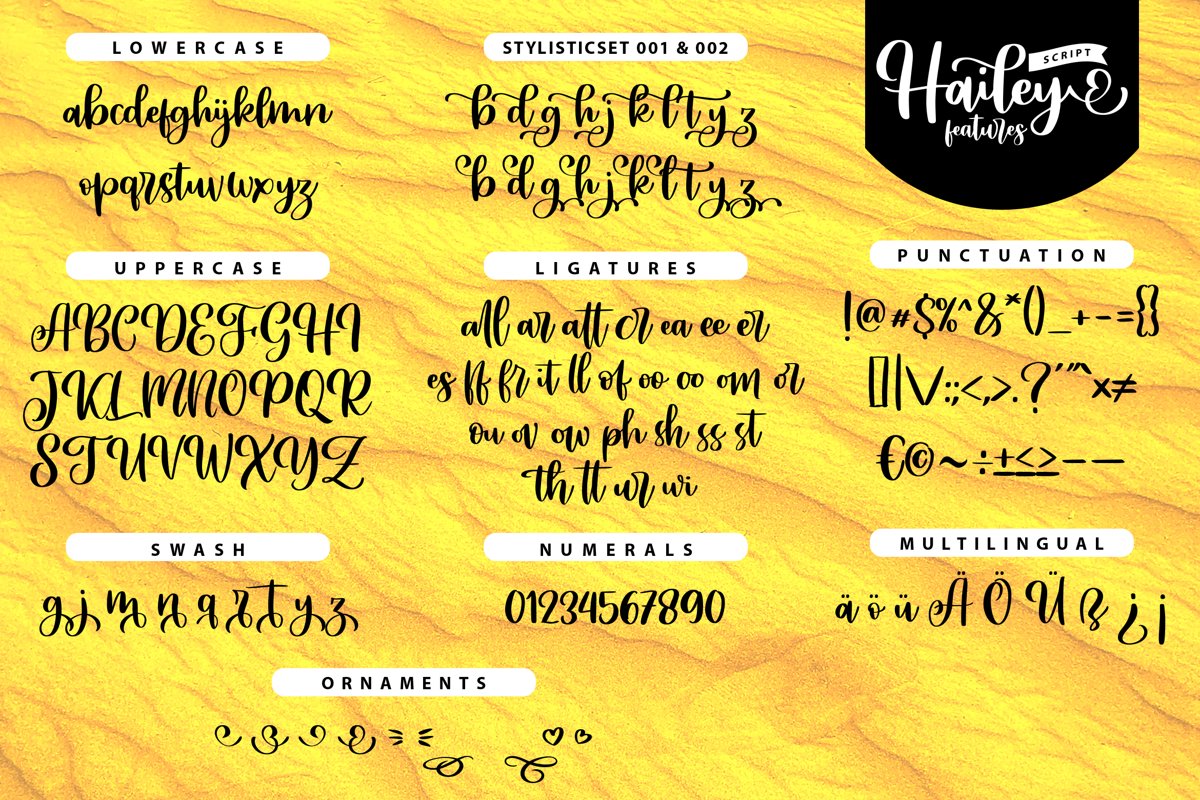 LOWERCASE
abcdefghijklmn
opqrstuvwxyz
STYLISTICSET 001 & 002
b d g h j k l t y z
b d g h j k l t y z
Hailey
SCRIPT
features
UPPERCASE
ABCDEFGHI
JKLMNOPQR
STUVWXYZ
LIGATURES
all ar att cr ea ee er
es ff fr it ll of oo oo om or
ou ov ow ph sh ss st
th tt ur wi
PUNCTUATION
!@#$%^&*()_+-={}
[]|\/:;<,>.?'"^x≠
€©~÷±≤≥–—
SWASH
g j m n q r t y z
NUMERALS
01234567890
MULTILINGUAL
ä ö ü Ä Ö Ü ß ¿ ¡
ORNAMENTS